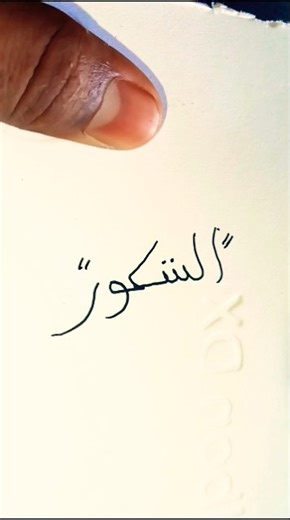 "الشكور"